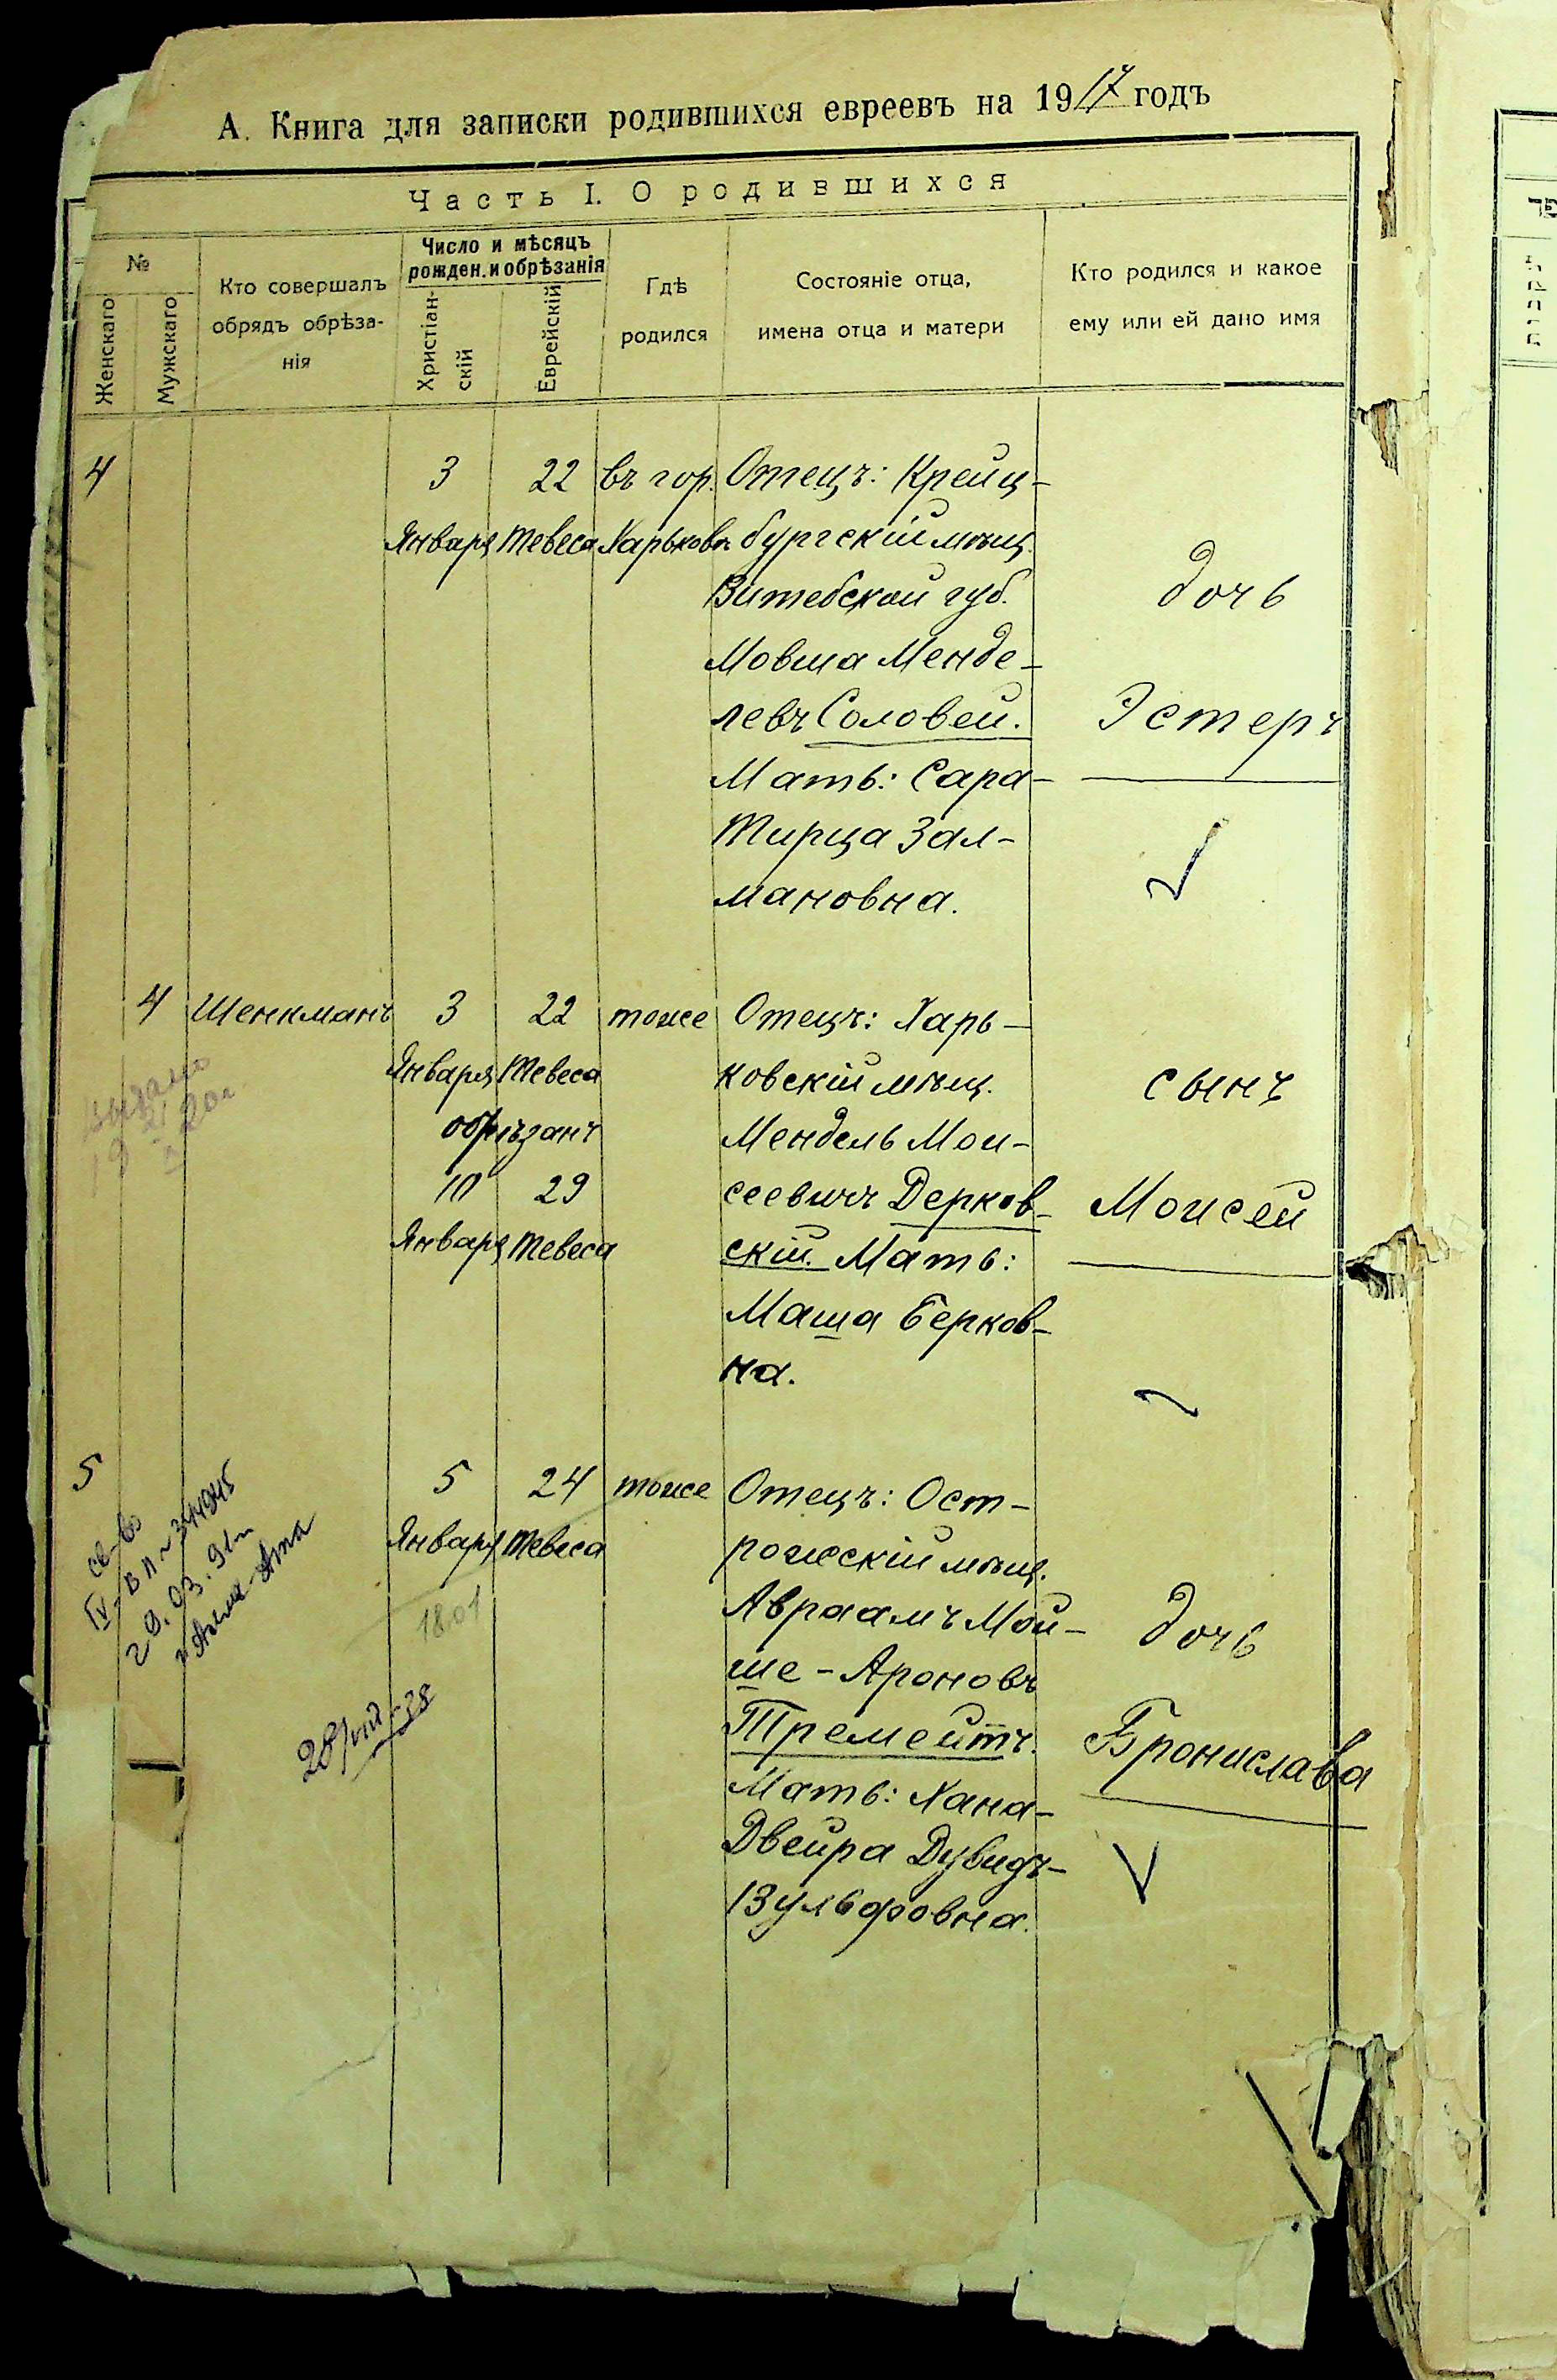 А. Книга для записки родившихся евреевъ на 1917 годъ
Часть I. О родившихся
№
Женскаго
Мужскаго
Кто совершалъ
обрядъ обрѣза-
нія
Число и мѣсяцъ
рожден. и обрѣзанія
Христіан-
скій
Еврейскій
Гдѣ
родился
Состояніе отца,
имена отца и матери
Кто родился и какое
ему или ей дано имя
4
3
Января
22
Тевеса
въ гор.
Харькова
Отецъ: Крейц-
бургскій мѣщ.
Витебской губ.
Мовша Менде-
левъ Соловей.
Мать: Сара-
Тирца Зал-
мановна.
дочь
Эстеръ
4
Шенкманъ
3
Января
22
Тевеса
обрѣзанъ
10
Января
29
Тевеса
тоже
Отецъ: Харь-
ковскій мѣщ.
Мендель Мои-
сеевичъ Дерков-
скій. Мать:
Маша Берков-
на.
сынъ
Моисей
выдано
5
5
Января
24
Тевеса
тоже
Отецъ: Ост-
рожскій мѣщ.
Авраамъ Мой-
ше-Ароновъ
Тремейтъ.
Мать: Хана-
Двейра Дувидъ-
Вульфовна.
дочь
Бронислава
св-во
29.03.91г
г. Алма-Ата
18.01
28/VIII-38